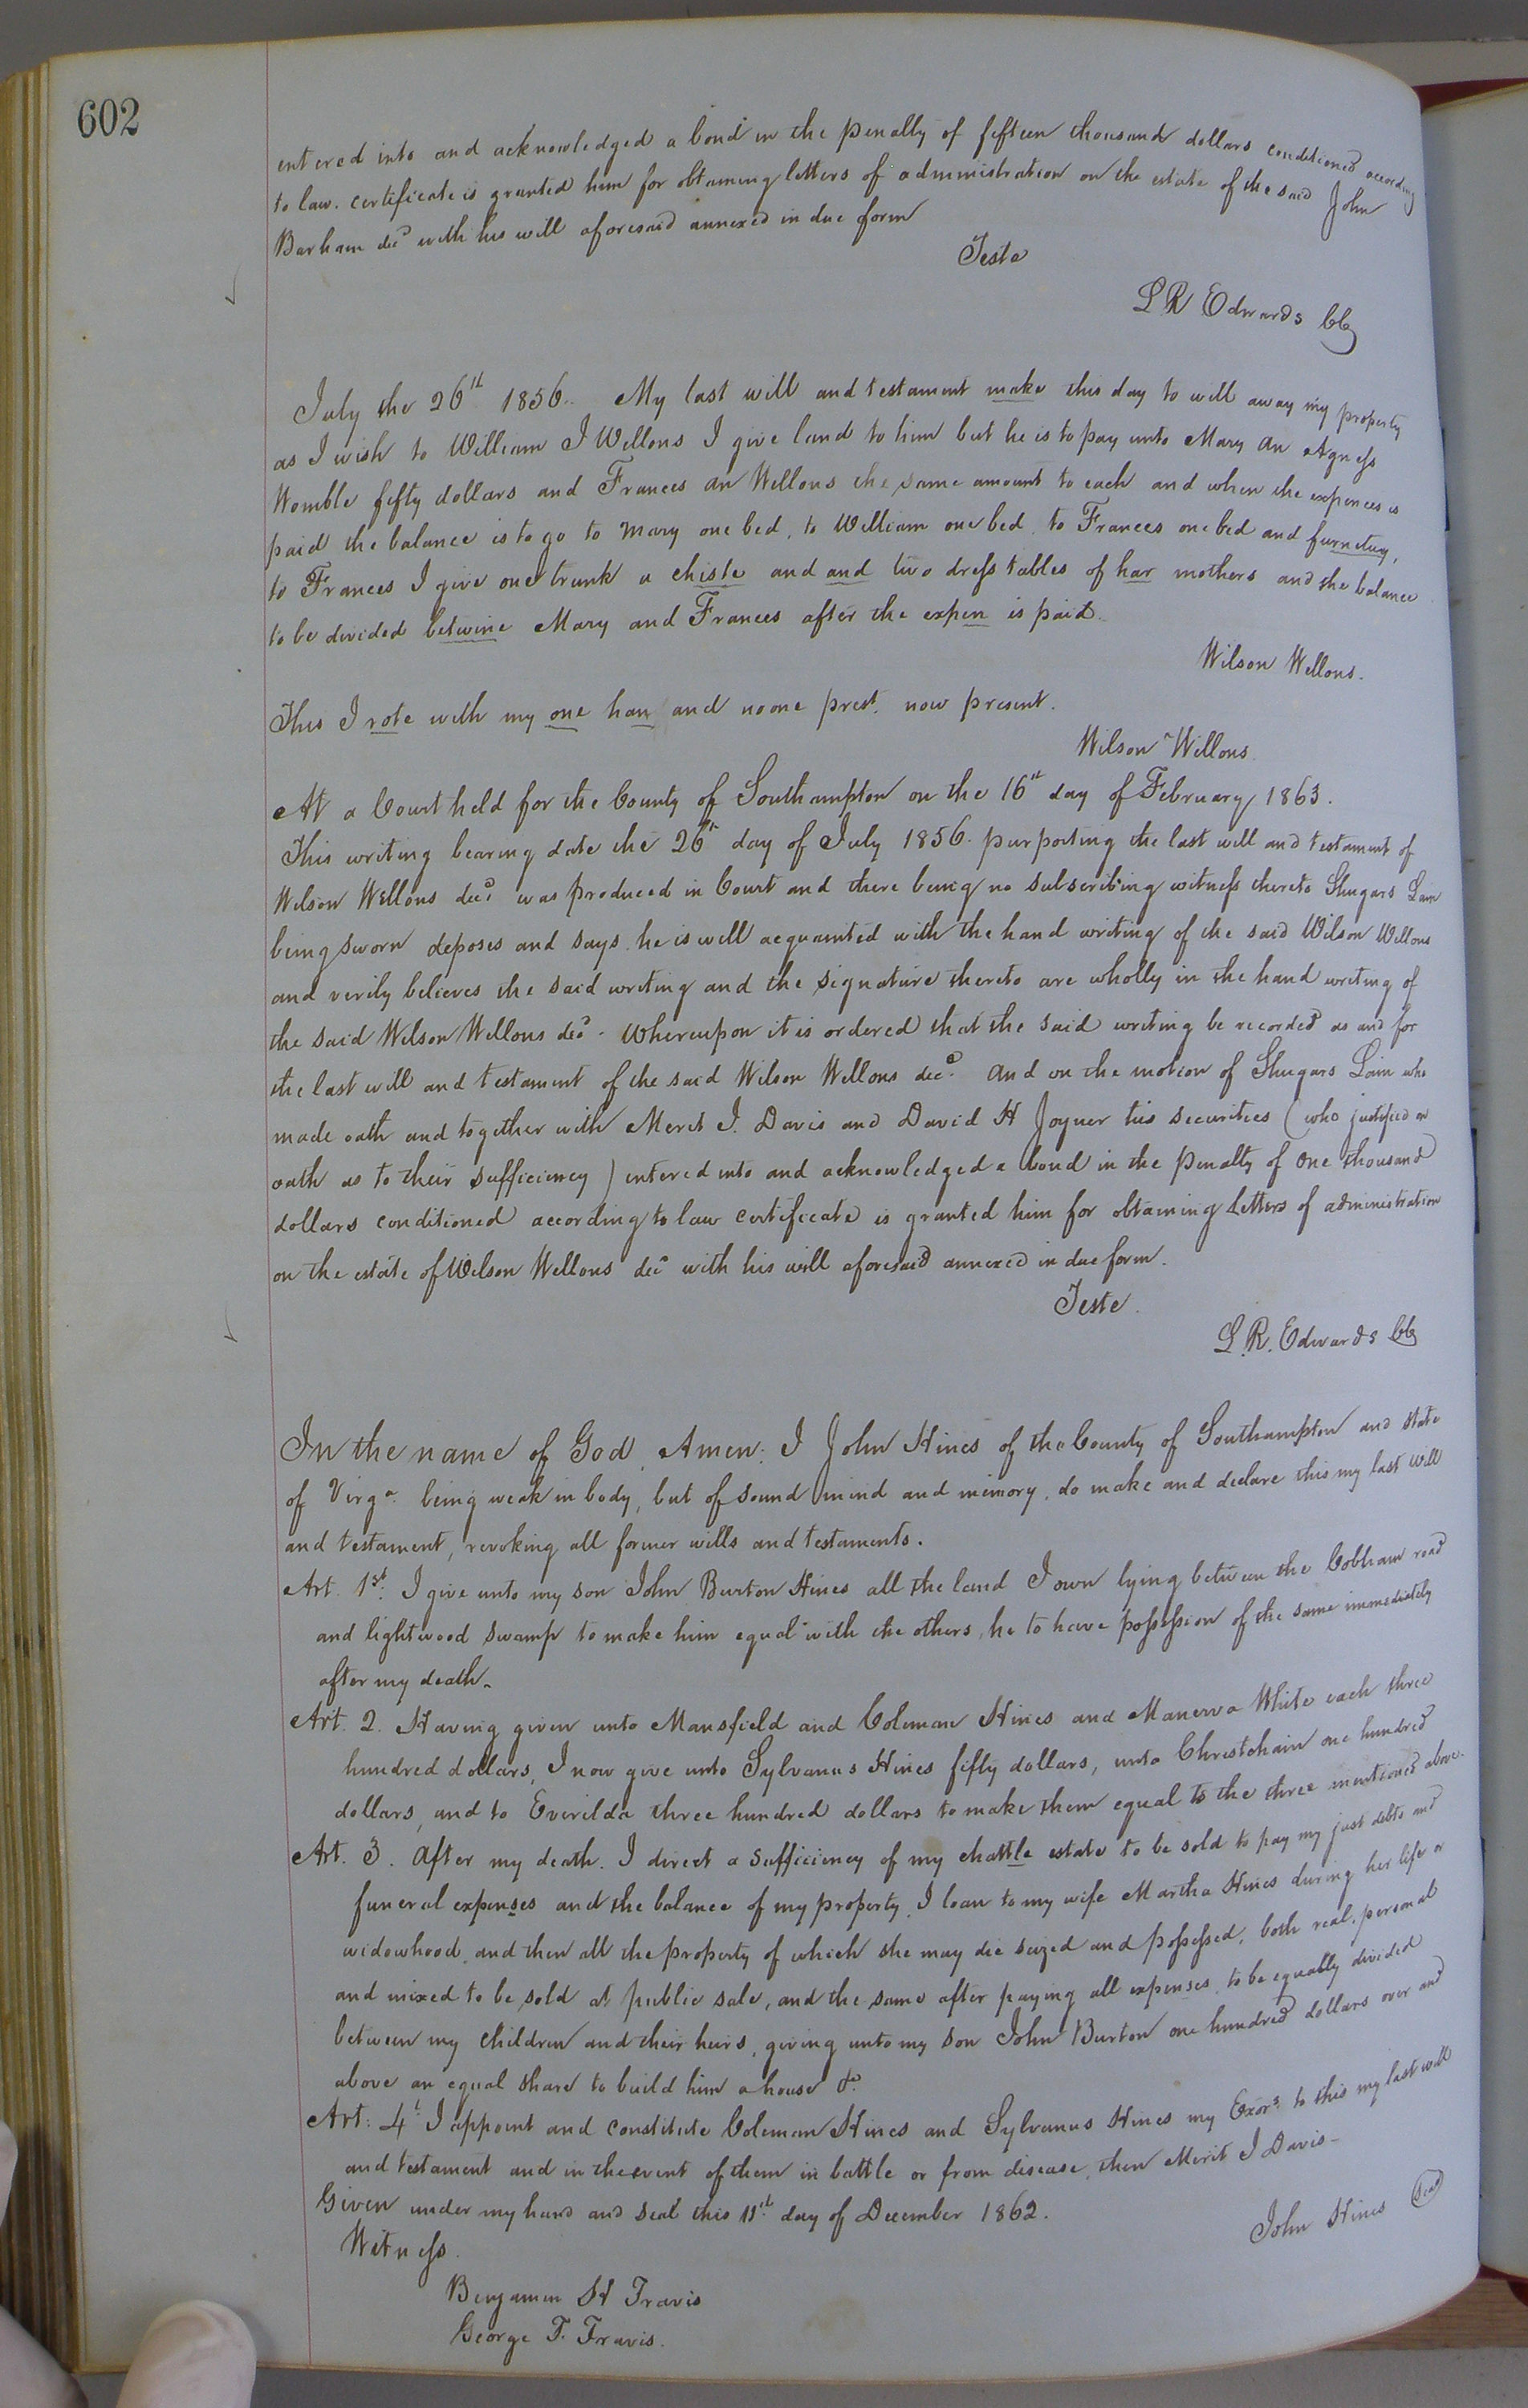 602
entered into and acknowledged a bond in the penalty of fifteen thousand dollars conditioned according
to law. certificate is granted him for obtaining letters of administration on the estate of the said John
Barham decd with his will aforesaid annexed in due form
Teste
L R Edwards Clk
July the 26th 1856. My last will and testament make this day to will away my property
as I wish to William J Wellons I give land to him but he is to pay unto Mary An Agness
Womble fifty dollars and Frances An Wellons the same amount to each and when the expences is
paid the balance is to go to Mary one bed, to William one bed, to Frances one bed and furnetuy,
to Frances I give one trunk a chiste and and two dress tables of har mothers and the balance
to be divided betwine Mary and Frances after the expen is paid.
Wilson Wellons.
This I rote with my one han and no one prest. now present.
Wilson Wellons
At a Court held for the County of Southampton on the 16th day of February 1863.
This writing bearing date the 26th day of July 1856. purporting the last will and testament of
Wilson Wellons decd was produced in Court and there being no subscribing witness thereto Shugars Lain
being sworn deposes and says he is well acquainted with the hand writing of the said Wilson Wellons
and verily believes the said writing and the signature thereto are wholly in the hand writing of
the said Wilson Wellons decd. Whereupon it is ordered that the said writing be recorded as and for
the last will and testament of the said Wilson Wellons decd. And on the motion of Shugars Lain who
made oath and together with Merit J. Davis and David H Joyner his securities (who justified on
oath as to their sufficiency) entered into and acknowledged a bond in the penalty of One thousand
dollars conditioned according to law certificate is granted him for obtaining letters of administration
on the estate of Wilson Wellons decd with his will aforesaid annexed in due form.
Teste.
L. R. Edwards Clk
In the name of God, Amen; I John Hines of the County of Southampton and State
of Virga. being weak in body, but of sound mind and memory, do make and declare this my last will
and testament, revoking all former wills and testaments.
Art. 1st. I give unto my son John Burton Hines all the land I own lying between the Cobham road
and lightwood swamp to make him equal with the others, he to have possession of the same immediately
after my death.
Art. 2. Having given unto Mansfield and Coleman Hines and Manerva White each three
hundred dollars, I now give unto Sylvanus Hines fifty dollars, unto Christchain one hundred
dollars, and to Everilda three hundred dollars to make them equal to the three mentioned above.
Art. 3. After my death. I direct a sufficiency of my chattle estate to be sold to pay my just debts and
funeral expenses and the balance of my property, I loan to my wife Martha Hines during her life or
widowhood, and then all the property of which she may die seized and possessed, both real, personal
and mixed to be sold at public sale, and the same after paying all expenses, to be equally divided
between my children and their heirs, giving unto my son John Burton one hundred dollars over and
above an equal share to build him a house &c.
Art: 4th I appoint and constitute Coleman Hines and Sylvanus Hines my Exors. to this my last will
and testament and in the event of them in battle or from disease, then Merit J Davis—
Given under my hand and seal this 15th day of December 1862.
John Hines Seal
Witness.
Benjamin H Travis
George F. Travis.